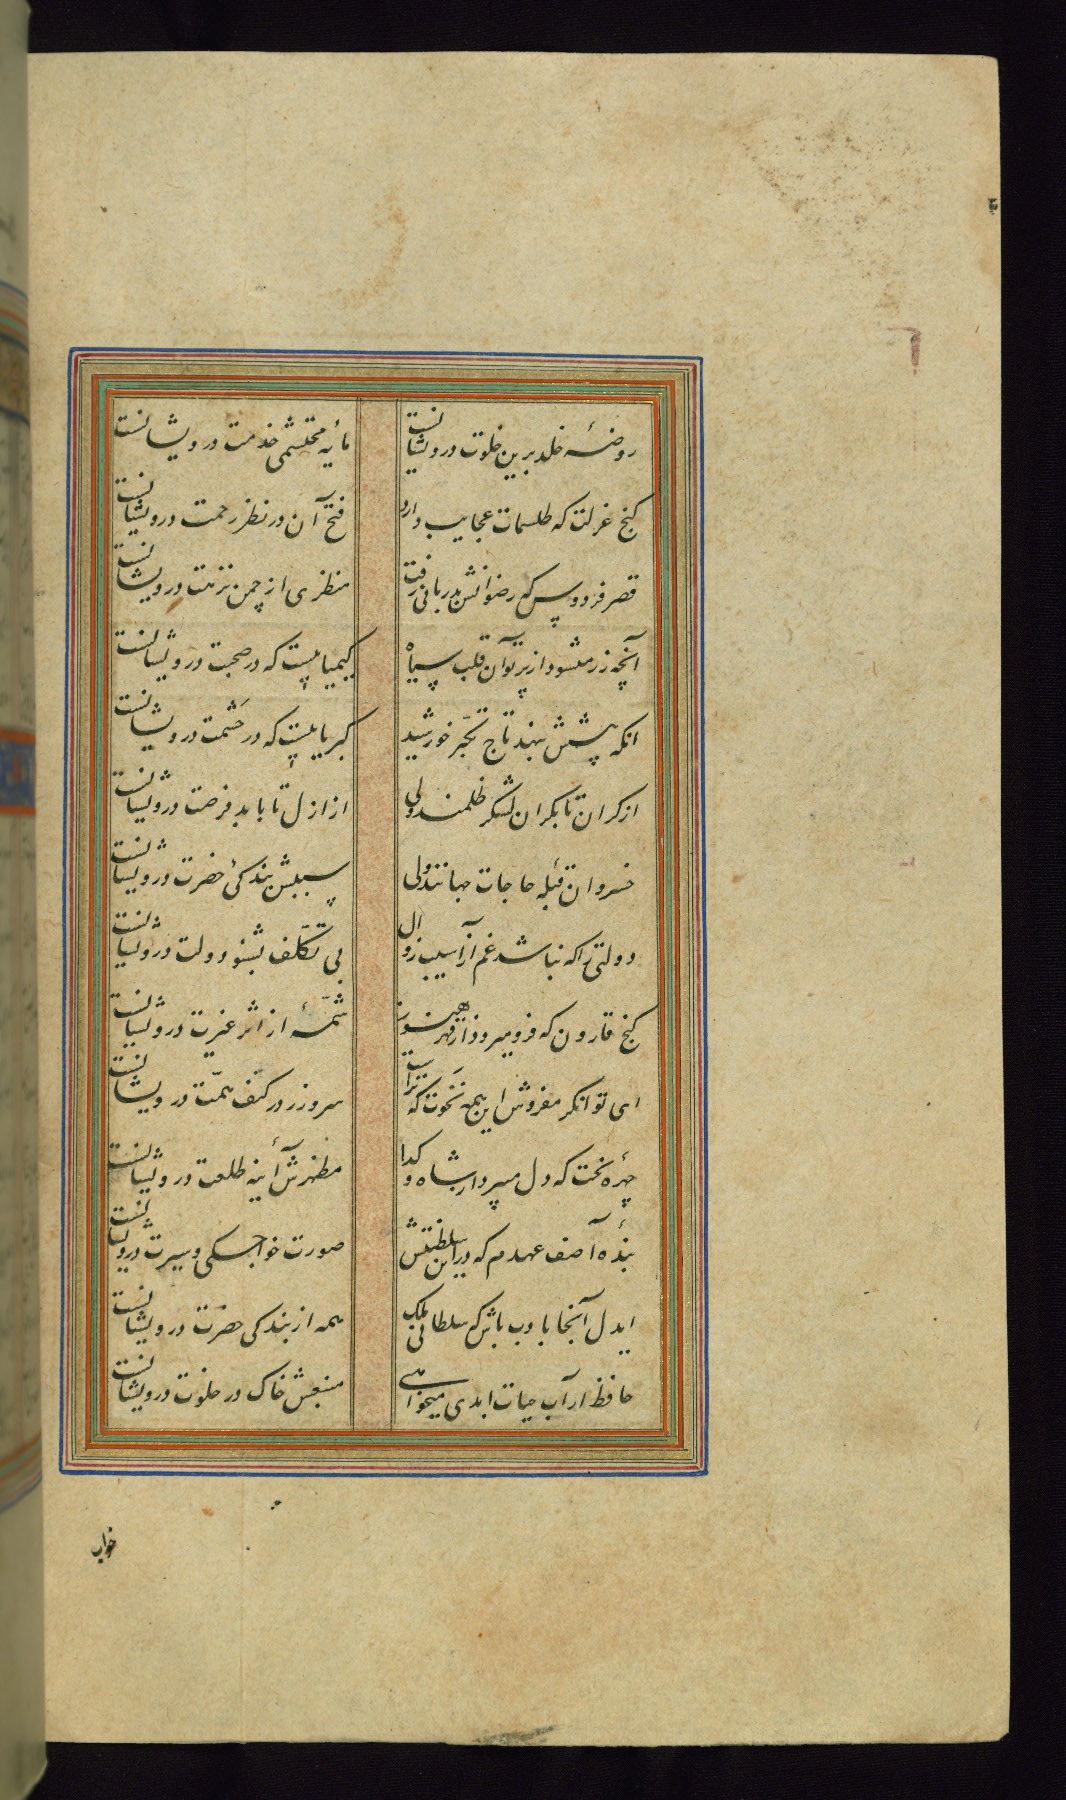 روضهٔ خلد برین خلوت درویشانست مایهٔ محتشمی خدمت درویشانست
کنج عزلت که طلسمات عجایب دارد فتح آن در نظر رحمت درویشانست
قصر فردوس که رضوانش بدربانی رفت منظری از چمن نزهت درویشانست
آنچه زر میشود از پرتو آن قلب سیاه کیمیاییست که در صحبت درویشانست
آنکه پیشش بنهد تاج تکبّر خورشید کبریاییست که در حَشمت درویشانست
از کران تا بکران لشکر ظلمند ولی از ازل تا بابد فرصت درویشانست
خسروان قبلهٔ حاجات جهانند ولی سببش بندکیٔ حضرت درویشانست
دولتی را که نباشد غم از آسیب زوال بی تکلّف بشنو دولت درویشانست
کنج قارون که فرو میرود از قهر هنوز شمّهٔ از اثر غیرت درویشانست
ای توانکر مفروش این همه نَخوت که ترا سر و زر در کنف همّت درویشانست
چهرهٔ بخت که دل میبرد از شاه و کدا مظهرش آینهٔ طلعت درویشانست
بندهٔ آصف عهدم که در این سلطنتش صورت خواجکی و سیرت درویشانست
ایدل آنجا با دب باش که سلطانی ملک همه از بندکی حضرت درویشانست
حافظ ار آب حیات ابدی میخواهی منبعش خاک در خلوت درویشانست
خواب